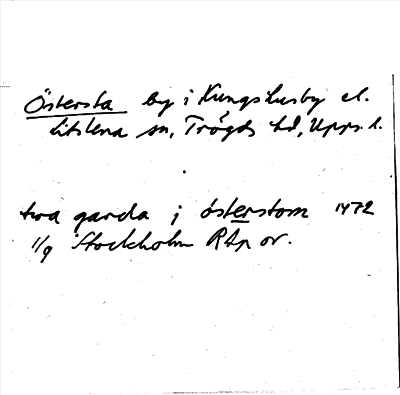 Östersta by i Kungshusby el.
Litslena sn, Trögds hd, Upps. l.
twa garda i österstom 1472
1/9 Stockholm RAp or.